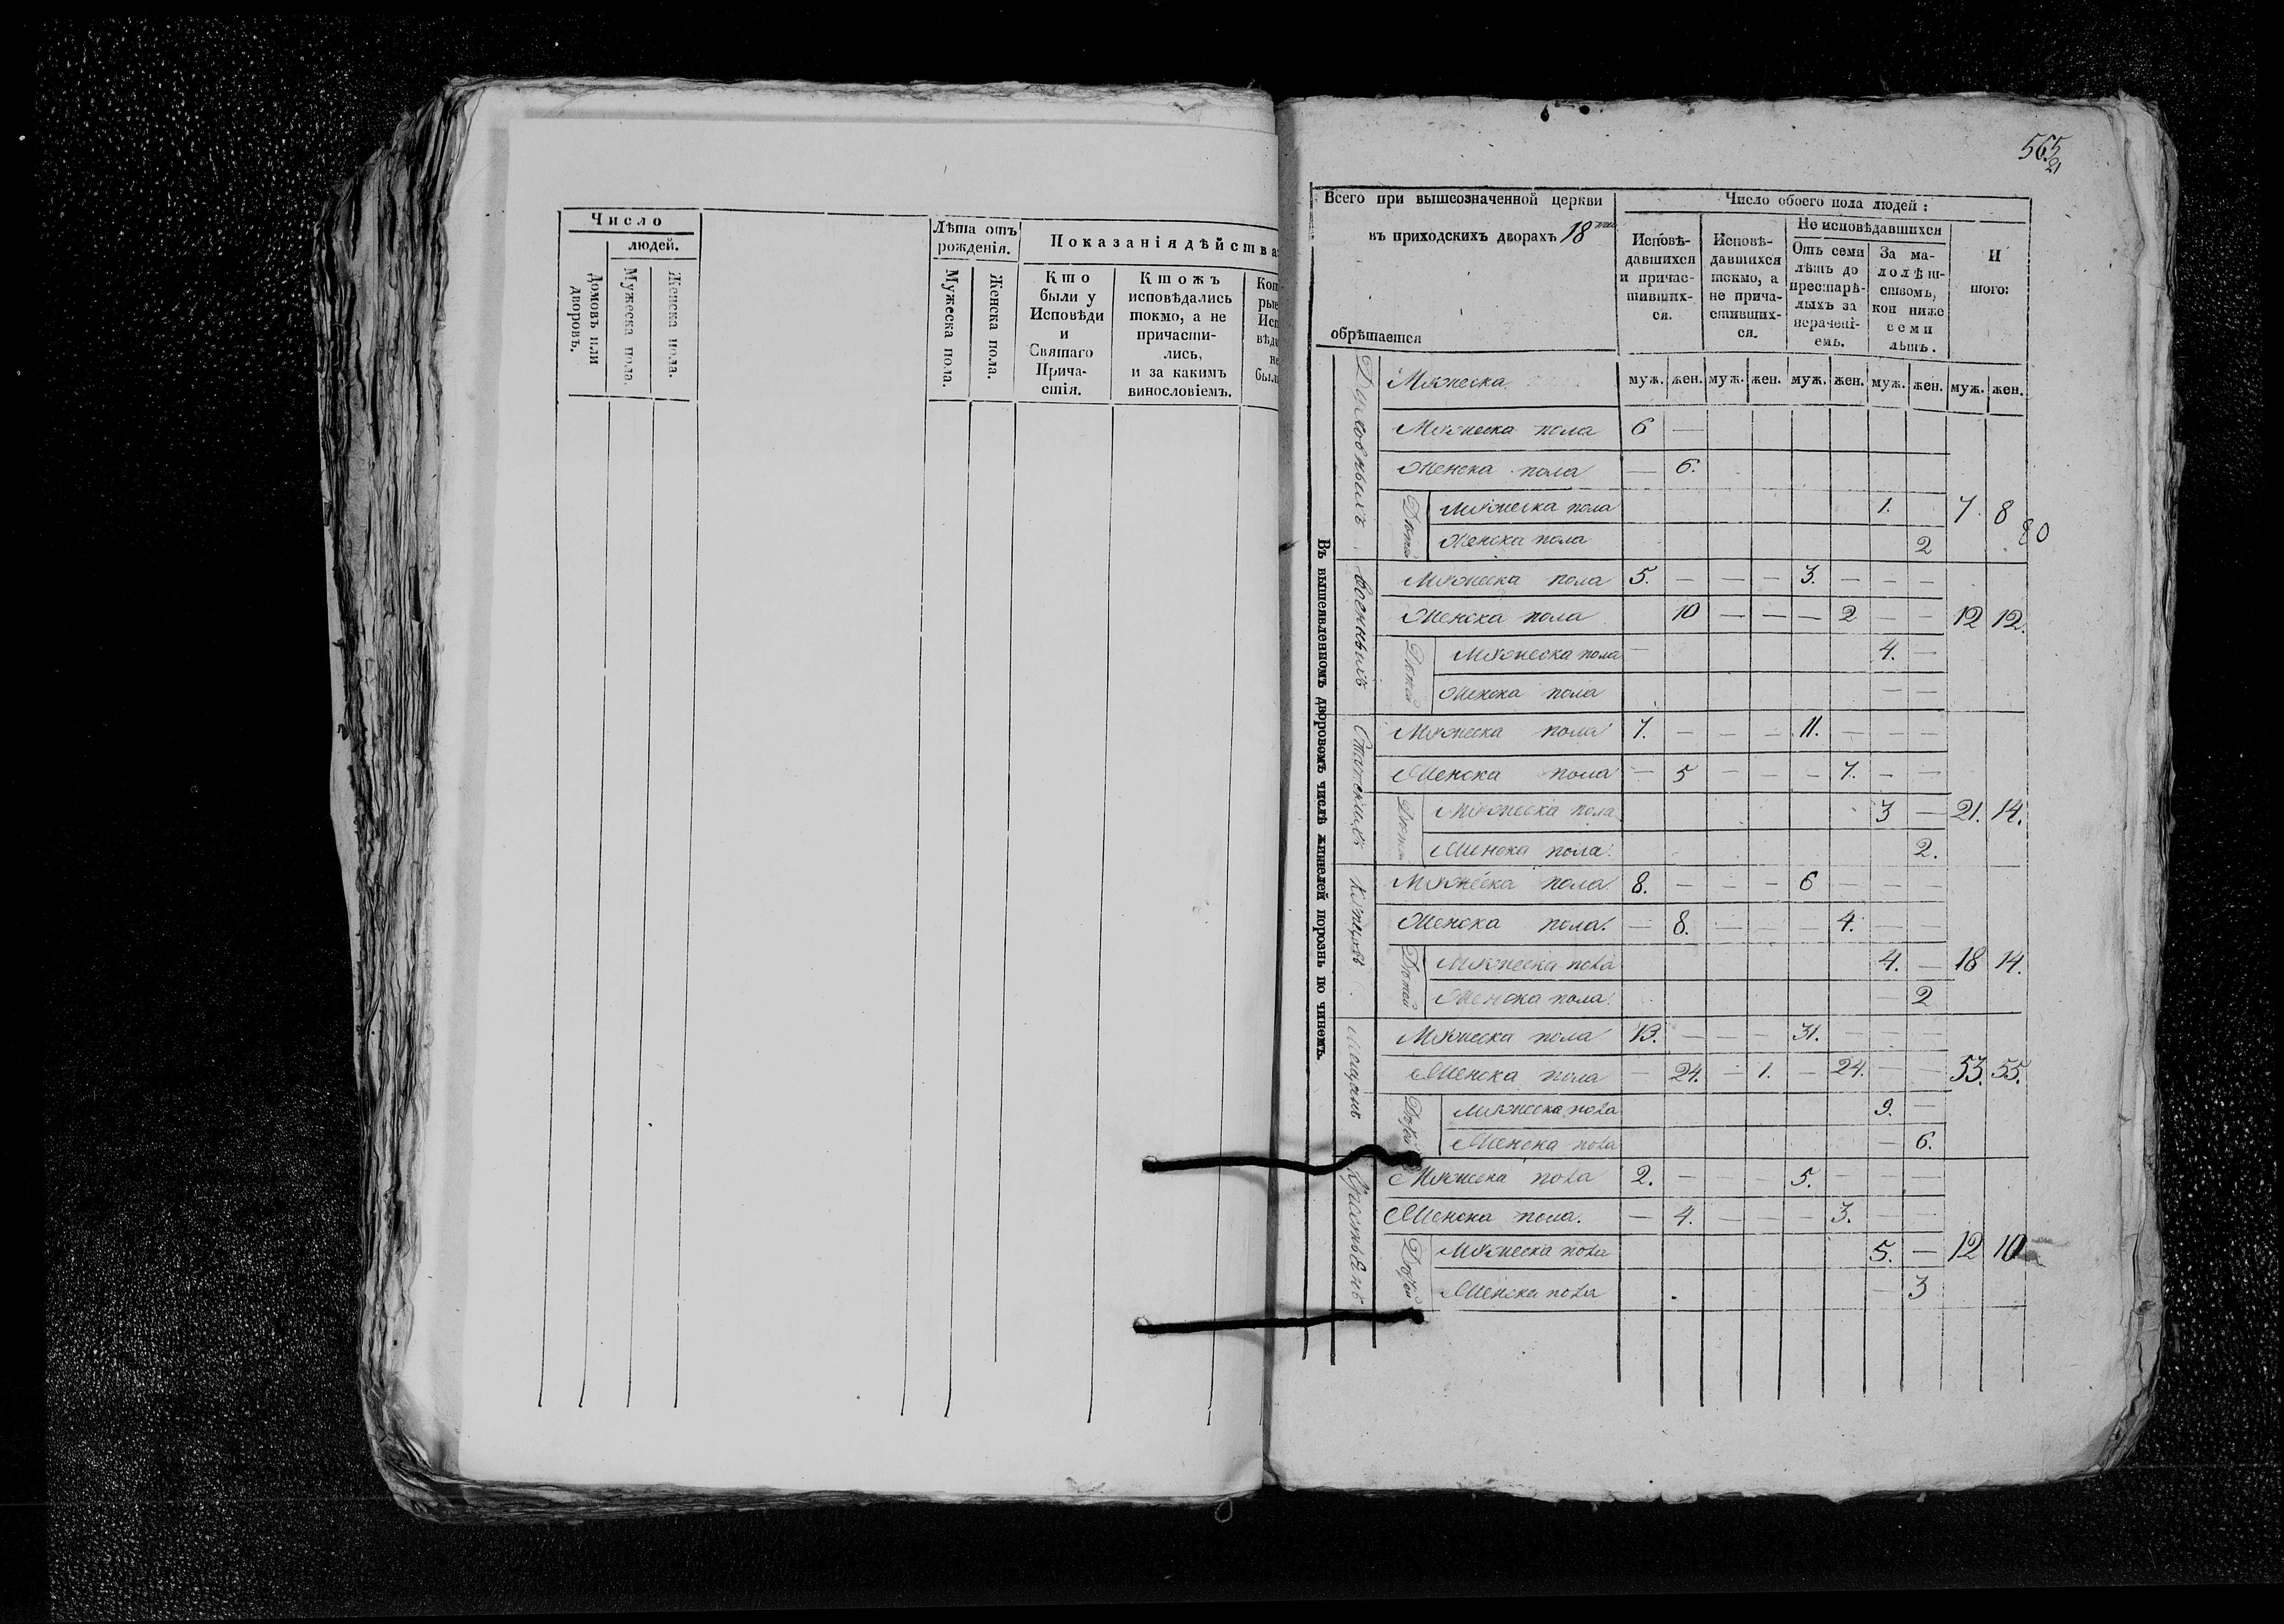 Число
людей.
Домовъ или дворовъ.
Мужеска пола.
Женска пола.
Лѣта отъ
рожденія.
Мужеска пола.
Женска пола.
Показанія дѣйства
Кто
были у
Исповѣди
и
Святаго
Прича-
стія.
Ктожъ
исповѣдались
токмо, а не
причасти-
лись,
и за какимъ
винословіемъ.
565
21
Всего при вышеозначенной церкви
въ приходскихъ дворахъ 18
обрѣтается
Число обоего пола людей:
Исповѣ-
давшихся
и причас-
тивших-
ся.
Исповѣ-
давшихся
токмо, а
не прича-
стивших-
ся.
Не исповѣдавшихся
Отъ семи
лѣтъ до
престарѣ-
лыхъ за
нерачені-
емъ.
За ма-
лолѣт-
ствомъ,
кои ниже
семи
лѣтъ.
И
того:
муж. жен. муж. жен. муж. жен. муж. жен. муж. жен.
Въ вышеявленномъ дворовомъ числѣ жителей порознь по чинемъ.
Духовныхъ
Мужеска
Мужеска пола 6 —
Женска пола — 6.
Дѣтей
Мужеска пола 1. 7. 8
80
Женска пола 2
Военныхъ
Мужеска пола 5. — — — 3. — — —
Женска пола 10 — — — 2 — — 12 12.
Дѣтей
Мужеска пола — 4. —
Женска пола — —
Статскихъ
Мужеска пола 7. — — — 11. — — —
Женска пола — 5 — — — 7. — —
Дѣтей
Мужеска пола 3 — 21. 14.
Женска пола. 2.
Купцовъ
Мужеска пола 8. — — — 6 — — —
Женска пола. — 8. — — — 4. — —
Дѣтей
Мужеска пола 4. — 18 14.
Женска пола. 2
Мещанъ
Мужеска пола 13. — — — 31. — — —
Женска пола — 24. — 1. — 24. — — 53. 55.
Дѣтей
Мужеска пола 9. —
Женска пола — 6.
Крестьянъ
Мужеска пола 2. — — — 5. — — —
Женска пола. — 4. — — — 3. — —
Дѣтей
Мужеска пола 5. — 12 10
Женска пола — 3